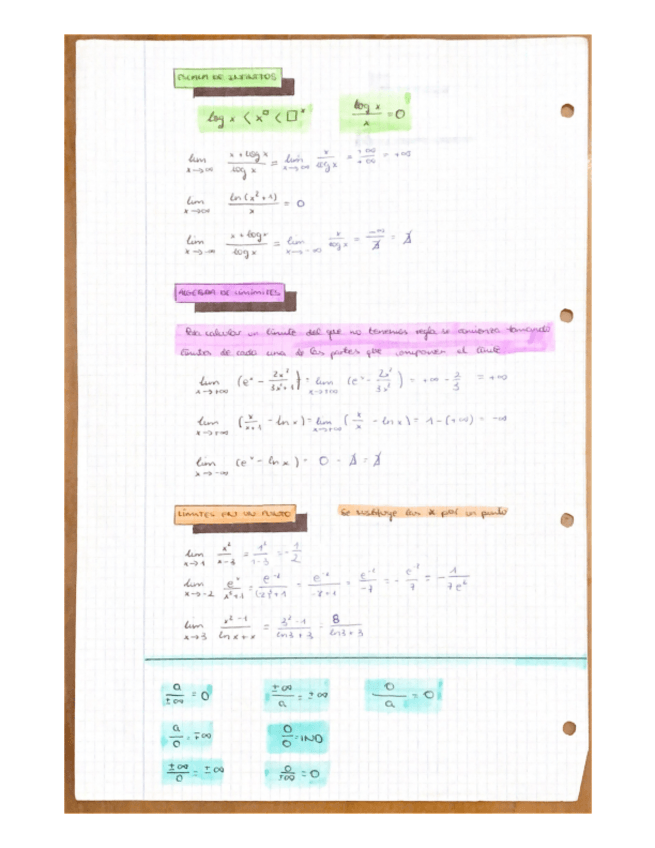 ESCALA DE INFINITOS
log x < x^□ < □^x    log x / x = 0
lim x→∞ (x + log x)/(log x) = lim x→∞ x/(log x) = +∞/+∞ = +∞
lim x→∞ ln(x²+1)/x = 0
lim x→-∞ (x + log x)/(log x) = lim x→-∞ x/(log x) = -∞/∄ = ∄
ALGEBRA DE
Para calcular un límite del que no tenemos regla se comienza tomando
límites de cada una de las partes que componen el límite.
lim x→+∞ (eˣ - 2x²/(3x²+1)) = lim x→+∞ (eˣ - 2x²/3x²) = +∞ - 2/3 = +∞
lim x→+∞ (x/(x+1) - ln x) = lim x→+∞ (x/x - ln x) = 1 - (+∞) = -∞
lim x→-∞ (eˣ - ln x) = 0 - ∄ = ∄
LÍMITES EN UN PUNTO    Se sustituye las x por un punto
lim x→1 x²/(x-3) = 1²/(1-3) = -1/2
lim x→-2 = -8+1 = e⁻²/-7 = - e⁻²/7 = - 1/7e²
lim x→3 (x²-1)/(ln x + x) = (3²-1)/(ln 3 + 3) = 8/(ln 3 + 3)
a/±∞ = 0    ±∞/a = ±∞    0/a = 0
a/0 = ∓∞    0/0 = IND
±∞/0 = ±∞    0/±∞ = 0